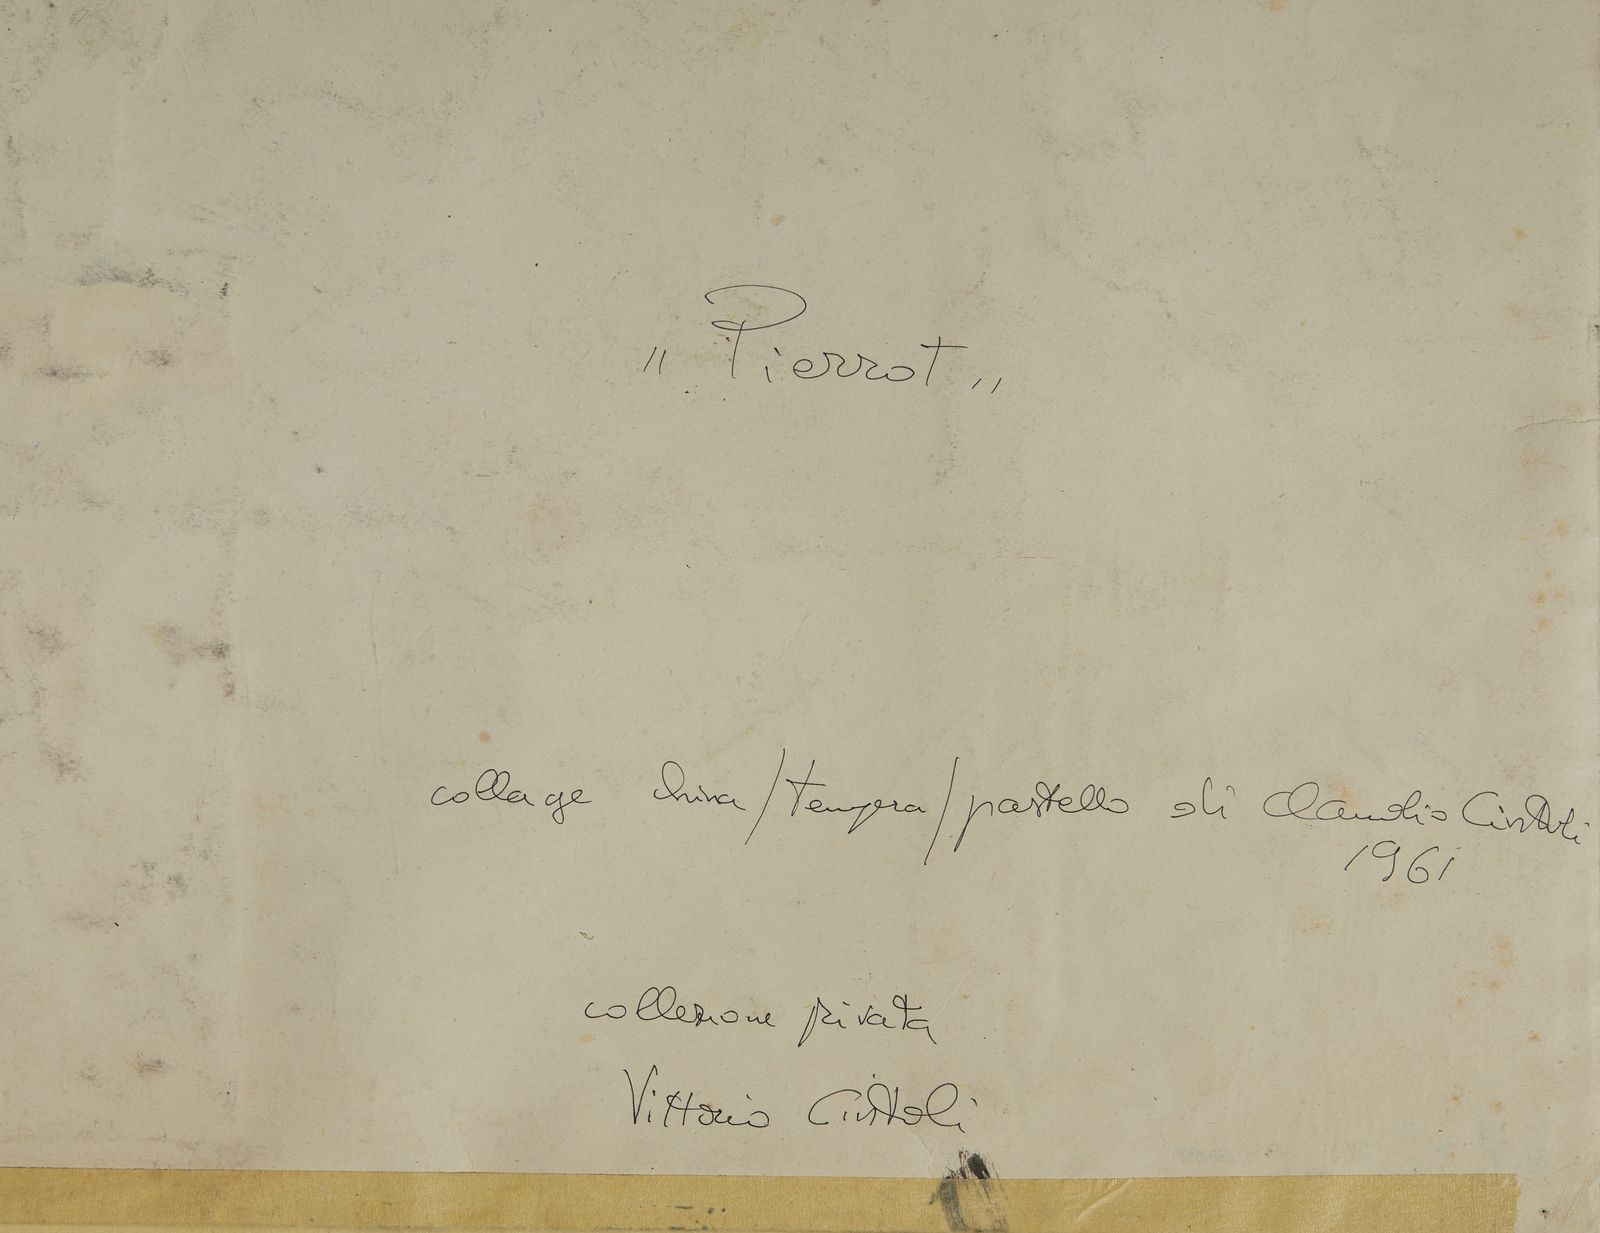 "Pierrot"
collage china/tempera/pastello di Claudio Cintoli
1961
collezione privata
Vittorio Cintoli